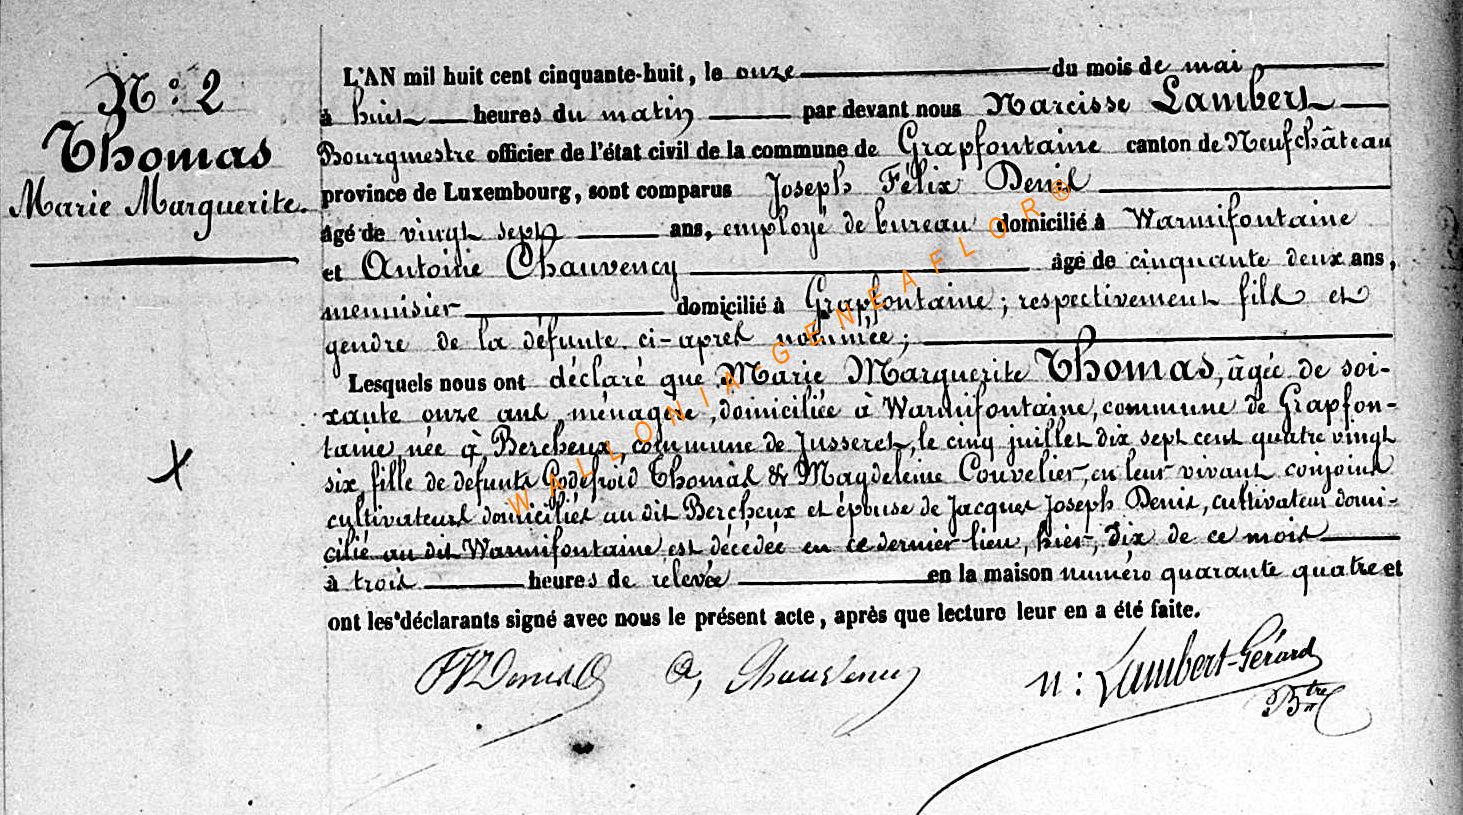 N.º 2
Thomas
Marie Marguerite.
L'AN mil huit cent cinquante-huit, le onze du mois de mai
à huit heures du matin par devant nous Narcisse Lambert
Bourgmestre officier de l'état civil de la commune de Grapfontaine canton de Neufchâteau
province de Luxembourg, sont comparus Joseph Félix Denis
âgé de vingt sept ans, employé de bureau domicilié à Warmifontaine
et Antoine Chauvency âgé de cinquante deux ans,
menuisier domicilié à Grapfontaine; respectivement fils et
gendre de la défunte ci-après nommée;
Lesquels nous ont déclaré que Marie Marguerite Thomas, âgée de soi-
xante onze ans, ménagère, domiciliée à Warmifontaine, commune de Grapfon-
taine née à Bercheux, commune de Jusseret, le cinq juillet dix sept cent quatre vingt
six, fille de défunts Godefroid Thomas & Magdeleine Couvelier, en leur vivant conjoints
cultivateurs domiciliés au dit Bercheux et épouse de Jacques Joseph Denis, cultivateur domi-
cilié au dit Warmifontaine est décédée en ce dernier lieu, hier, dix de ce mois
à trois heures de relevée en la maison numéro quarante quatre et
ont les déclarants signé avec nous le présent acte, après que lecture leur en a été faite.
A, Chauvency
N: Lambert-Gérard
Btre
WALLONIA-GENEAFLOR®